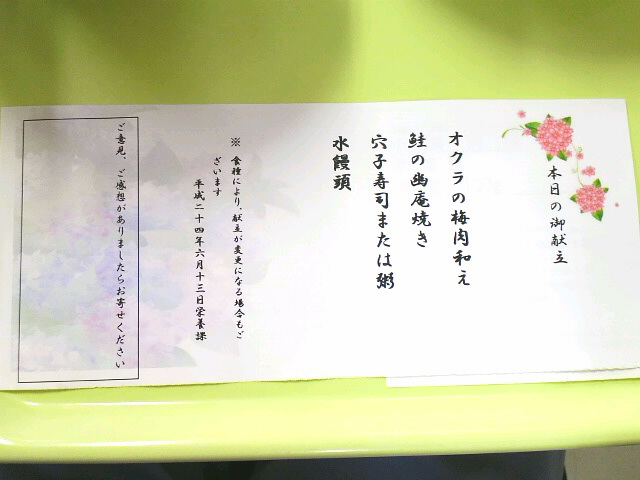 本日の御献立
オクラの梅肉和え
鮭の幽庵焼き
穴子寿司または粥
水饅頭
※ 食種により、献立が変更になる場合もご
ざいます
平成二十四年六月十三日栄養課
ご意見、ご感想がありましたらお寄せください